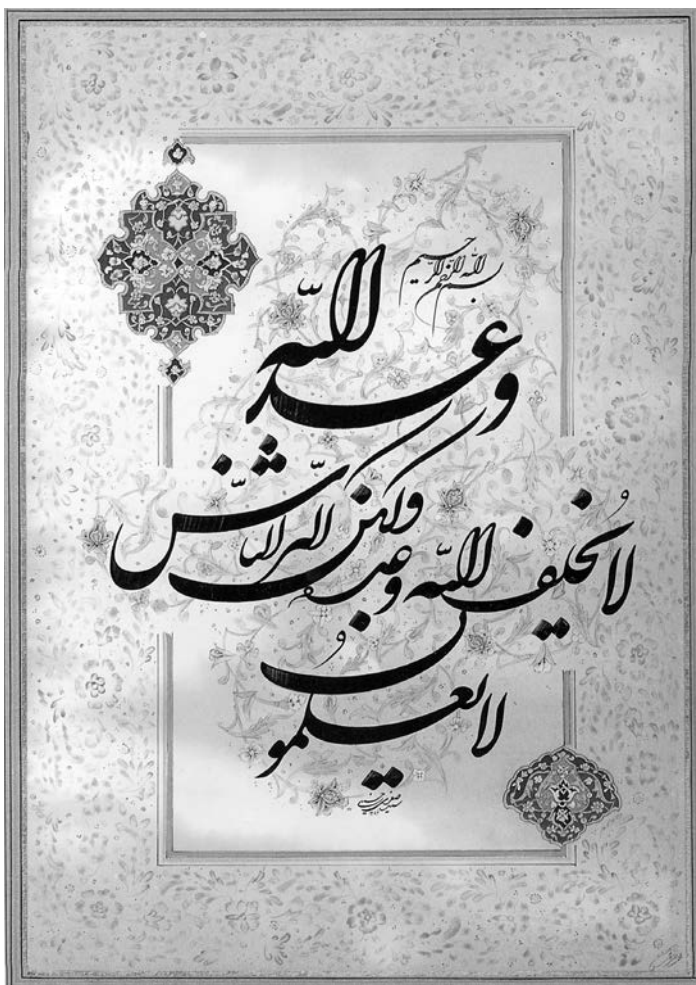 بسم الله الرحمن الرحیم
وعد الله
لا یخلف الله وعده ولکن اکثر الناس
لا یعلمون